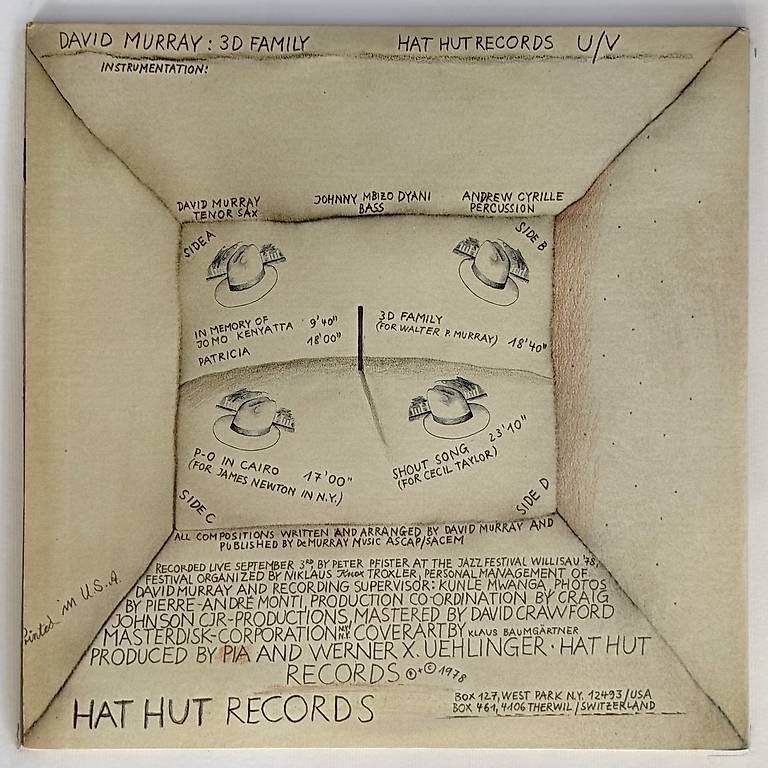 DAVID MURRAY: 3D FAMILY HAT HUT RECORDS U/V
INSTRUMENTATION:
DAVID MURRAY
TENOR SAX
JOHNNY MBIZO DYANI
BASS
ANDREW CYRILLE
PERCUSSION
SIDE A
IN MEMORY OF
JOMO KENYATTA 9'40"
PATRICIA 18'00"
SIDE B
3D FAMILY
(FOR WALTER P. MURRAY) 18'40"
P-O IN CAIRO 17'00"
(FOR JAMES NEWTON IN N.Y.)
SIDE C
SHOUT SONG 23'10"
(FOR CECIL TAYLOR)
SIDE D
ALL COMPOSITIONS WRITTEN AND ARRANGED BY DAVID MURRAY AND
PUBLISHED BY DeMURRAY MUSIC ASCAP/SACEM
RECORDED LIVE SEPTEMBER 3RD BY PETER PFISTER AT THE JAZZ FESTIVAL WILLISAU '78,
FESTIVAL ORGANIZED BY NIKLAUS Knox TROXLER, PERSONAL MANAGEMENT OF
DAVID MURRAY AND RECORDING SUPERVISOR: KUNLE MWANGA, PHOTOS
BY PIERRE-ANDRÉ MONTI, PRODUCTION CO-ORDINATION BY CRAIG
JOHNSON CJR-PRODUCTIONS, MASTERED BY DAVID CRAWFORD
MASTERDISK-CORPORATION COVERART BY KLAUS BAUMGÄRTNER
PRODUCED BY PIA AND WERNER X. UEHLINGER · HAT HUT
RECORDS ℗+© 1978
Printed in U.S.A.
HAT HUT RECORDS
BOX 127, WEST PARK N.Y. 12493/USA
BOX 461, 4106 THERWIL/SWITZERLAND